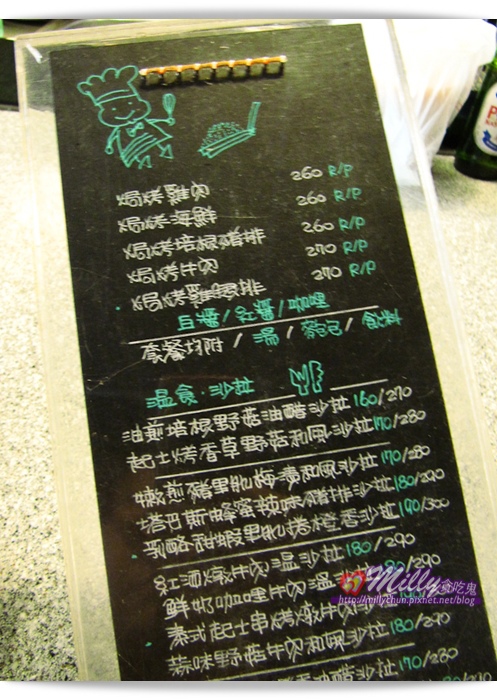 焗烤雞肉 260 R/P
焗烤海鮮 260 R/P
焗烤培根豬排 260 R/P
焗烤牛肉 270 R/P
焗烤雞腿排 270 R/P
白醬/紅醬/咖哩
套餐均附/湯/麵包/飲料
溫食·沙拉
油煎培根野菇油醋沙拉 160/270
起士烤香草野菇和風沙拉 170/280
嫩煎豬里肌梅漬和風沙拉 170/280
塔巴斯蜂蜜辣味豬排沙拉 180/290
甜蝦里肌 橙香沙拉 190/300
紅酒燉牛肉溫沙拉 180/290
鮮奶咖哩牛肉溫 /290
泰式起士串烤燉牛肉
蒜味野菇牛肉和風沙拉 180/290
油醋沙拉 170/280
Milly貪吃鬼
http://millychun.pixnet.net/blog